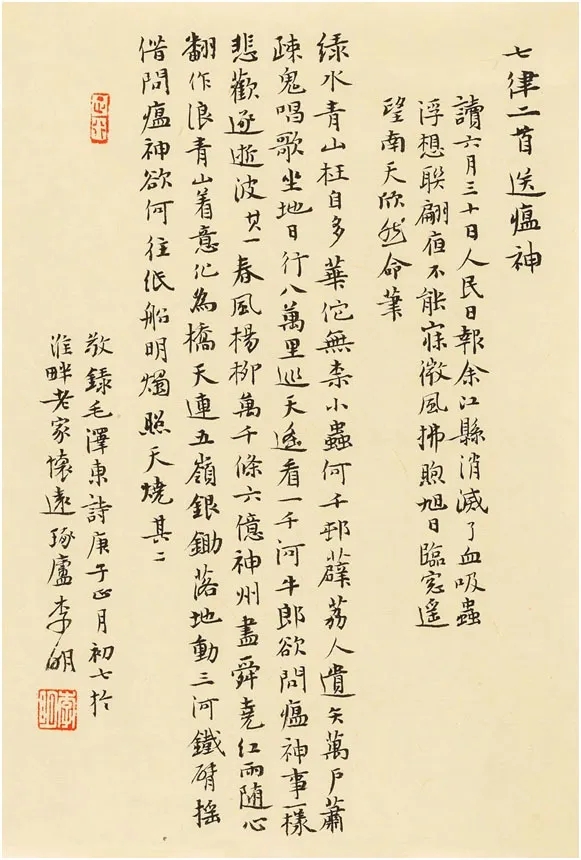 七律二首送瘟神
讀六月三十日人民日報余江縣消滅了血吸蟲
浮想聯翩夜不能寐微風拂煦旭日臨窓遥
望南天欣然命筆
绿水青山枉自多華佗無柰小蟲何千邨薜荔人遺矢萬戶蕭
疎鬼唱歌坐地日行八萬里巡天遙看一千河牛郎欲問瘟神事一樣
悲歡逐逝波其一春風楊柳萬千條六億神州盡舜堯红雨随心
翻作浪青山着意化為橋天連五嶺銀鋤落地動三河鐵臂搖
借問瘟神欲何往紙船明燭照天燒其二
敬錄毛澤東詩庚子正月初七於
淮畔老家懷遠琢廬李明
李明